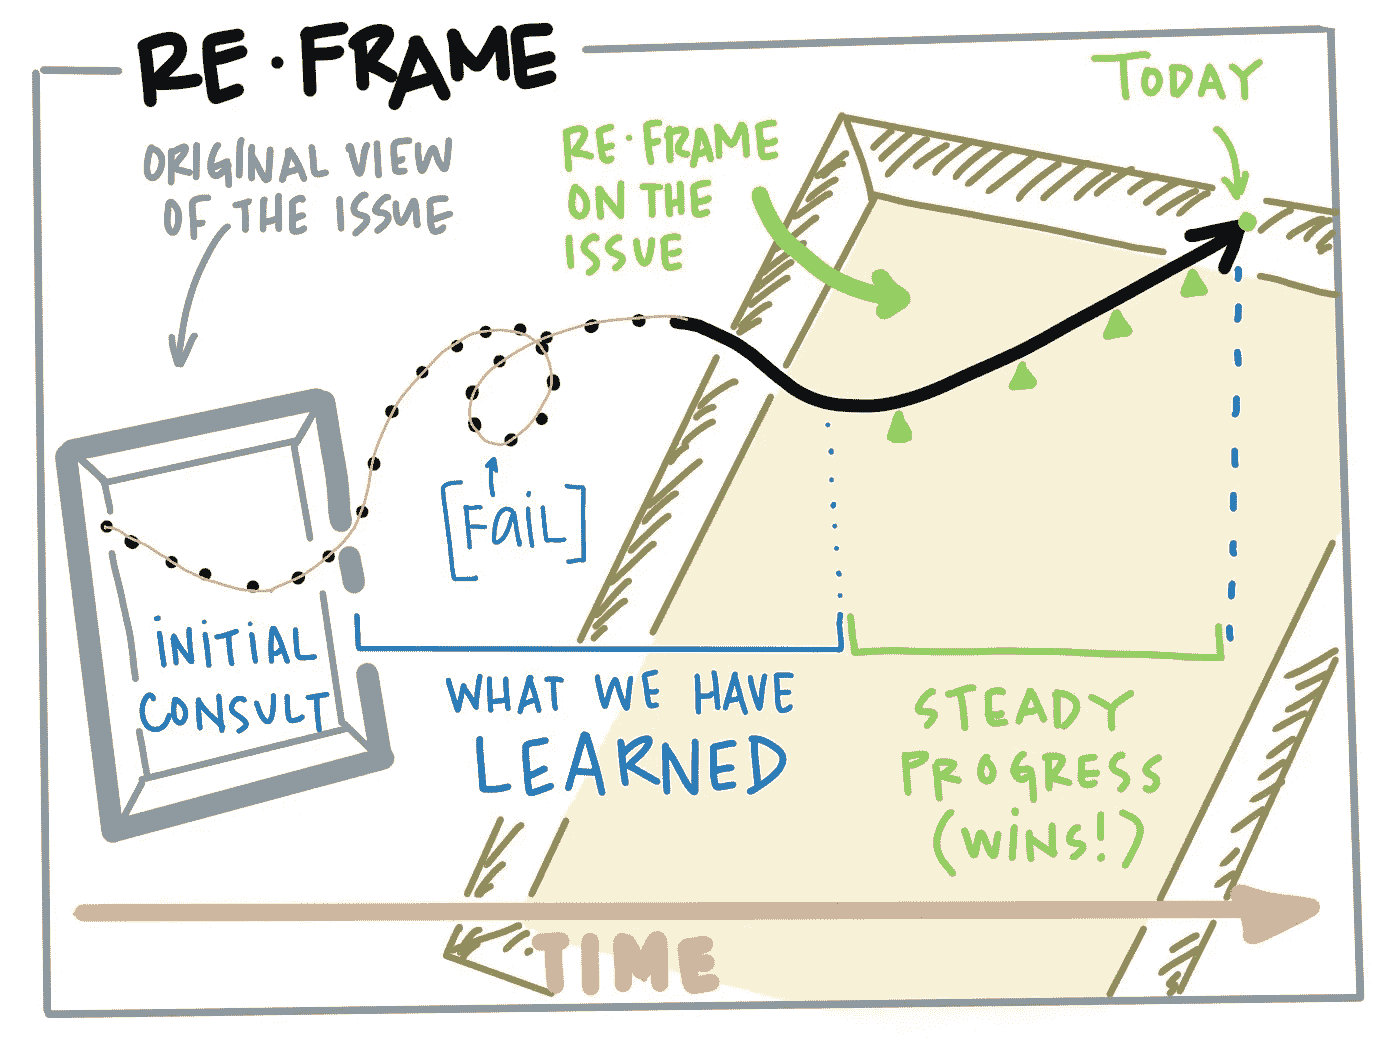 RE·FRAME
ORIGINAL VIEW
OF THE ISSUE
RE·FRAME
ON THE
ISSUE
TODAY
[FaiL]
iNiTiAL
CONSULT
WHAT WE HAVE
LEARNED
STEADY
PROGRESS
(WiNS!)
TIME